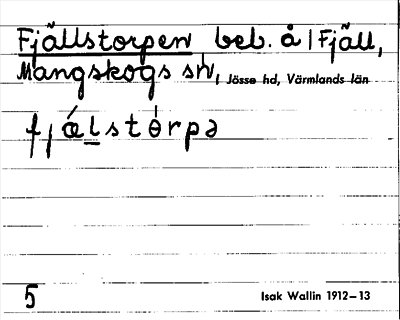 Fjällstorpen beb. å | Fjäll,
Mangskogs sn, Jösse hd, Värmlands län
fjǽl̲stȯrpə
5 Isak Wallin 1912–13